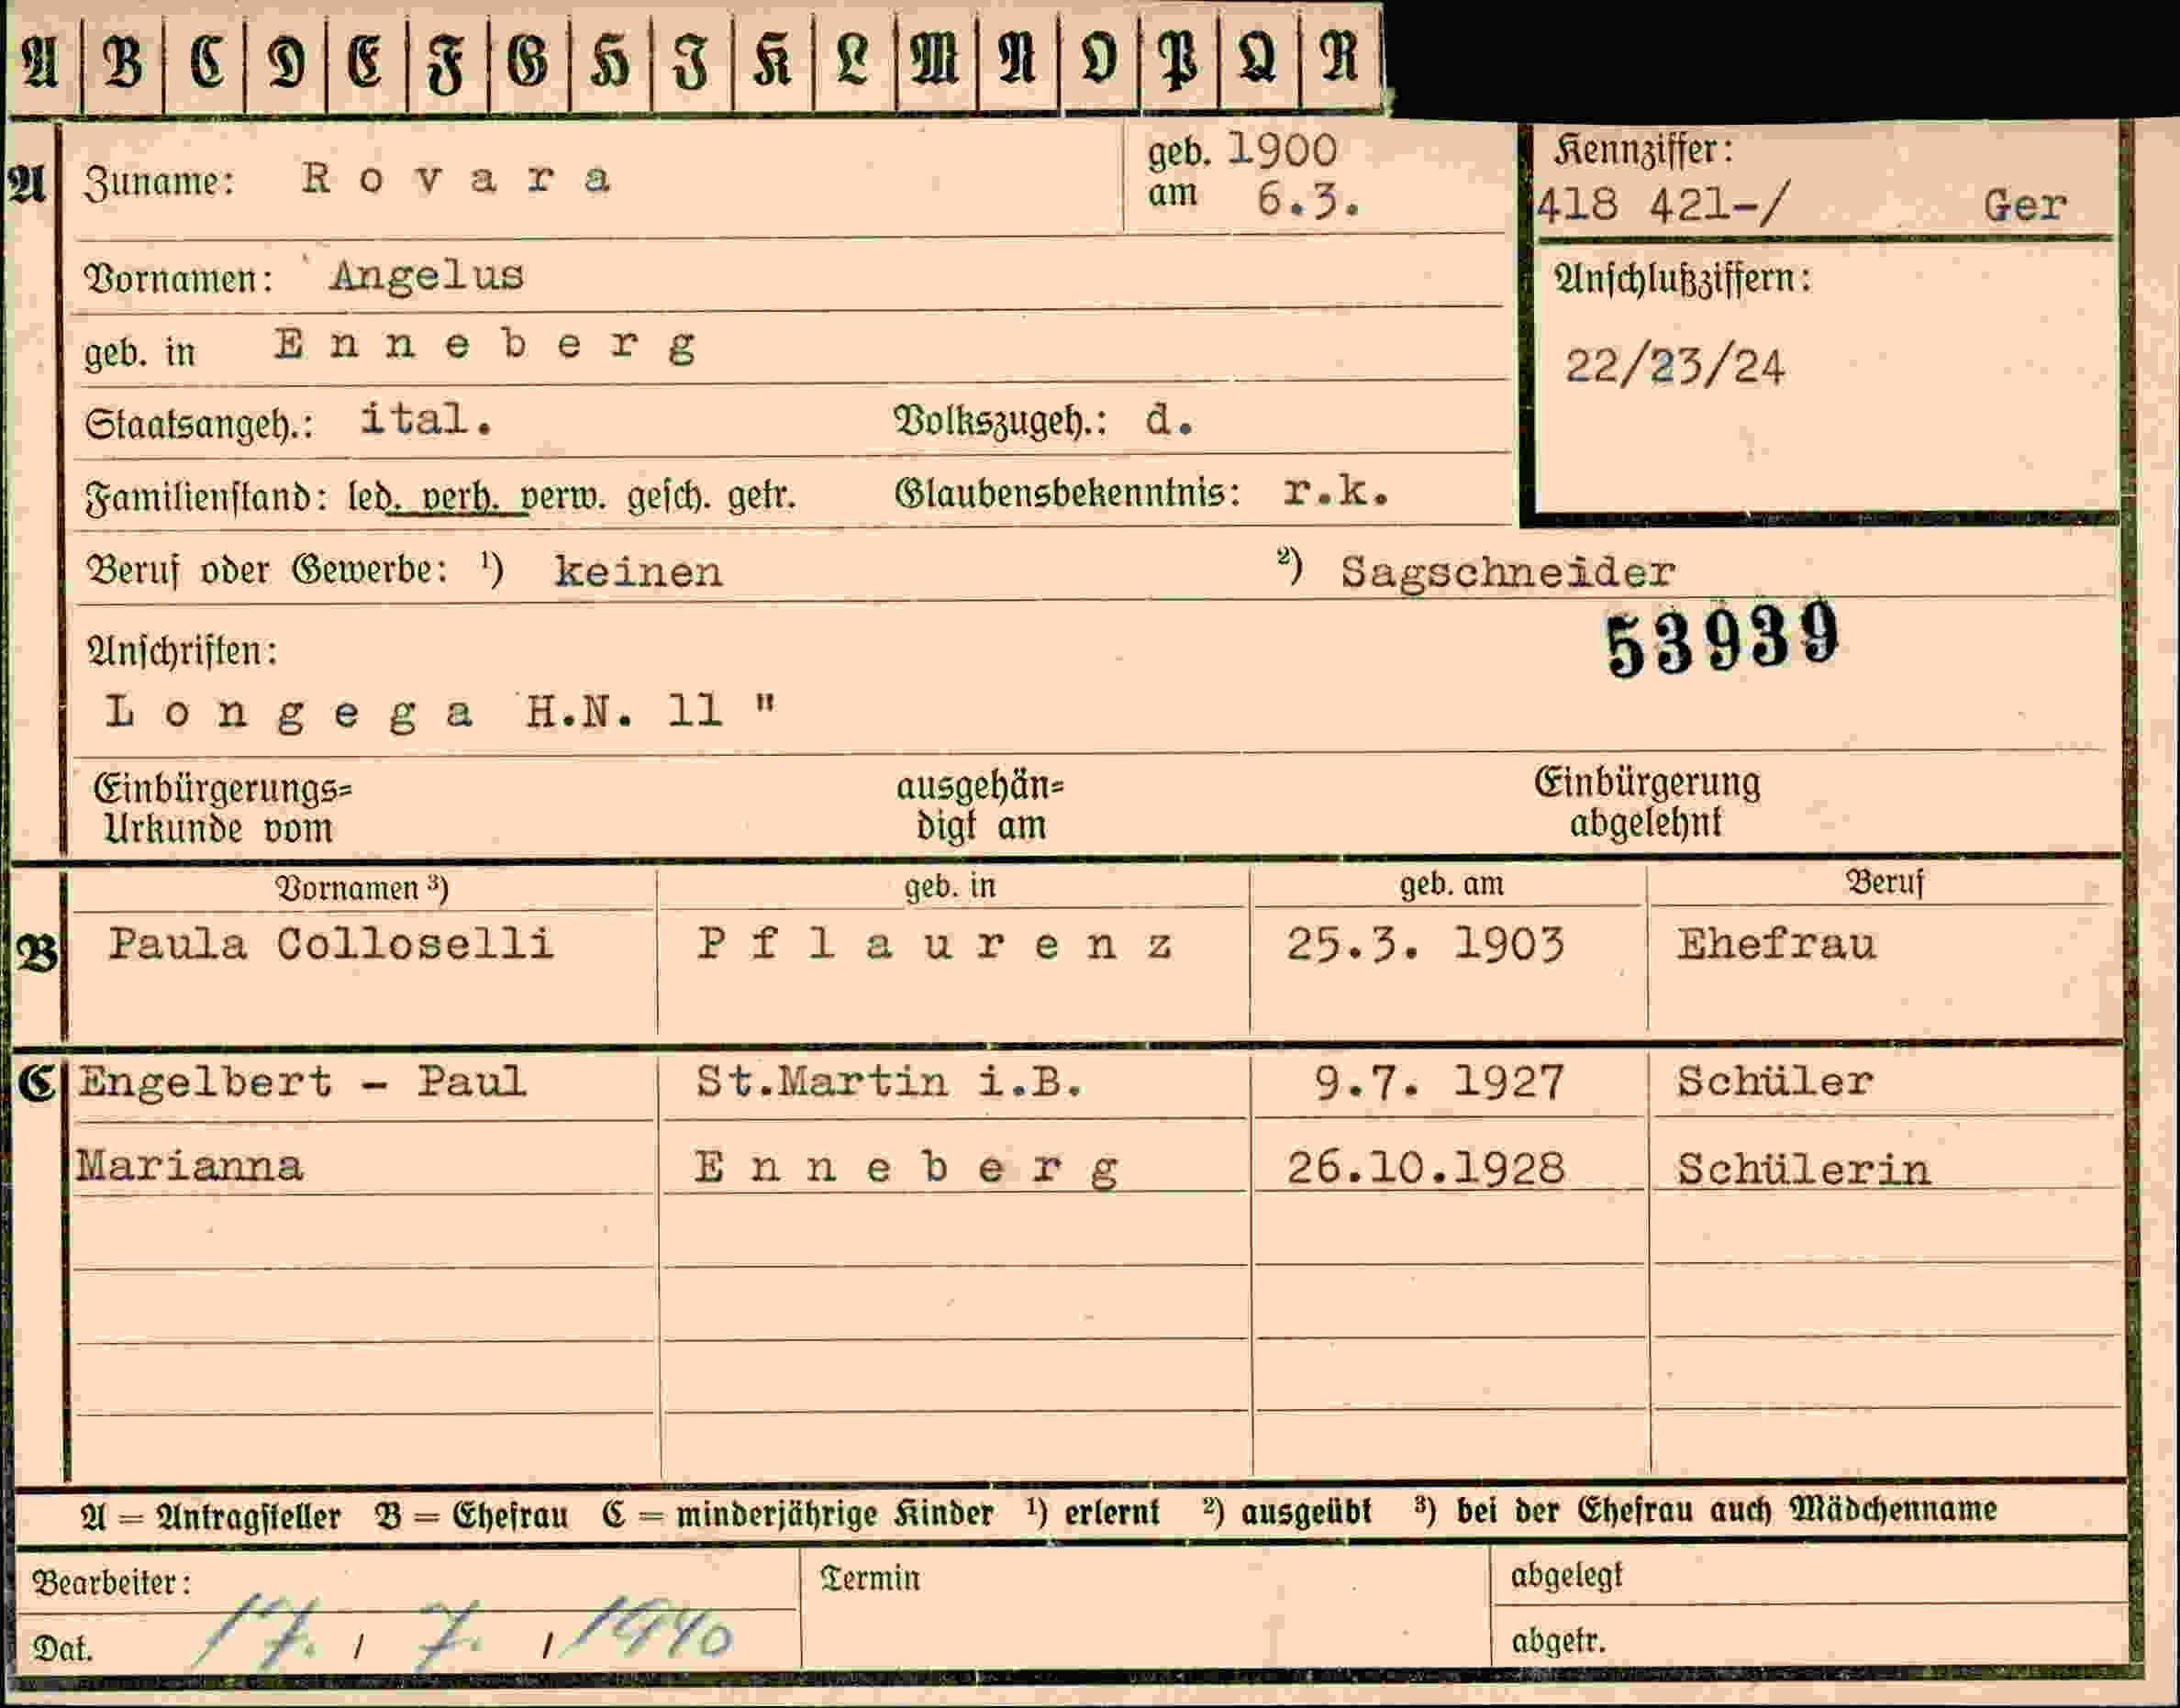 A B C D E F G H I K L M N O P Q R
A Zuname: Rovara geb. 1900
am 6.3.
Kennziffer:
418 421-/ Ger
Vornamen: Angelus
Anschlußziffern:
geb. in Enneberg
22/23/24
Staatsangeh.: ital. Volkszugeh.: d.
Familienstand: led. verh. verw. gesch. getr. Glaubensbekenntnis: r.k.
Beruf oder Gewerbe: ¹) keinen ²) Sagschneider
53939
Anschriften:
Longega H.N. 11 "
Einbürgerungs= ausgehän= Einbürgerung
Urkunde vom digt am abgelehnt
Vornamen ³) geb. in geb. am Beruf
B Paula Colloselli Pflaurenz 25.3. 1903 Ehefrau
C Engelbert - Paul St.Martin i.B. 9.7. 1927 Schüler
Marianna Enneberg 26.10.1928 Schülerin
A = Antragsteller B = Ehefrau C = minderjährige Kinder ¹) erlernt ²) ausgeübt ³) bei der Ehefrau auch Mädchenname
Bearbeiter: Termin abgelegt
Dat. 17. / 7. / 1940 abgetr.